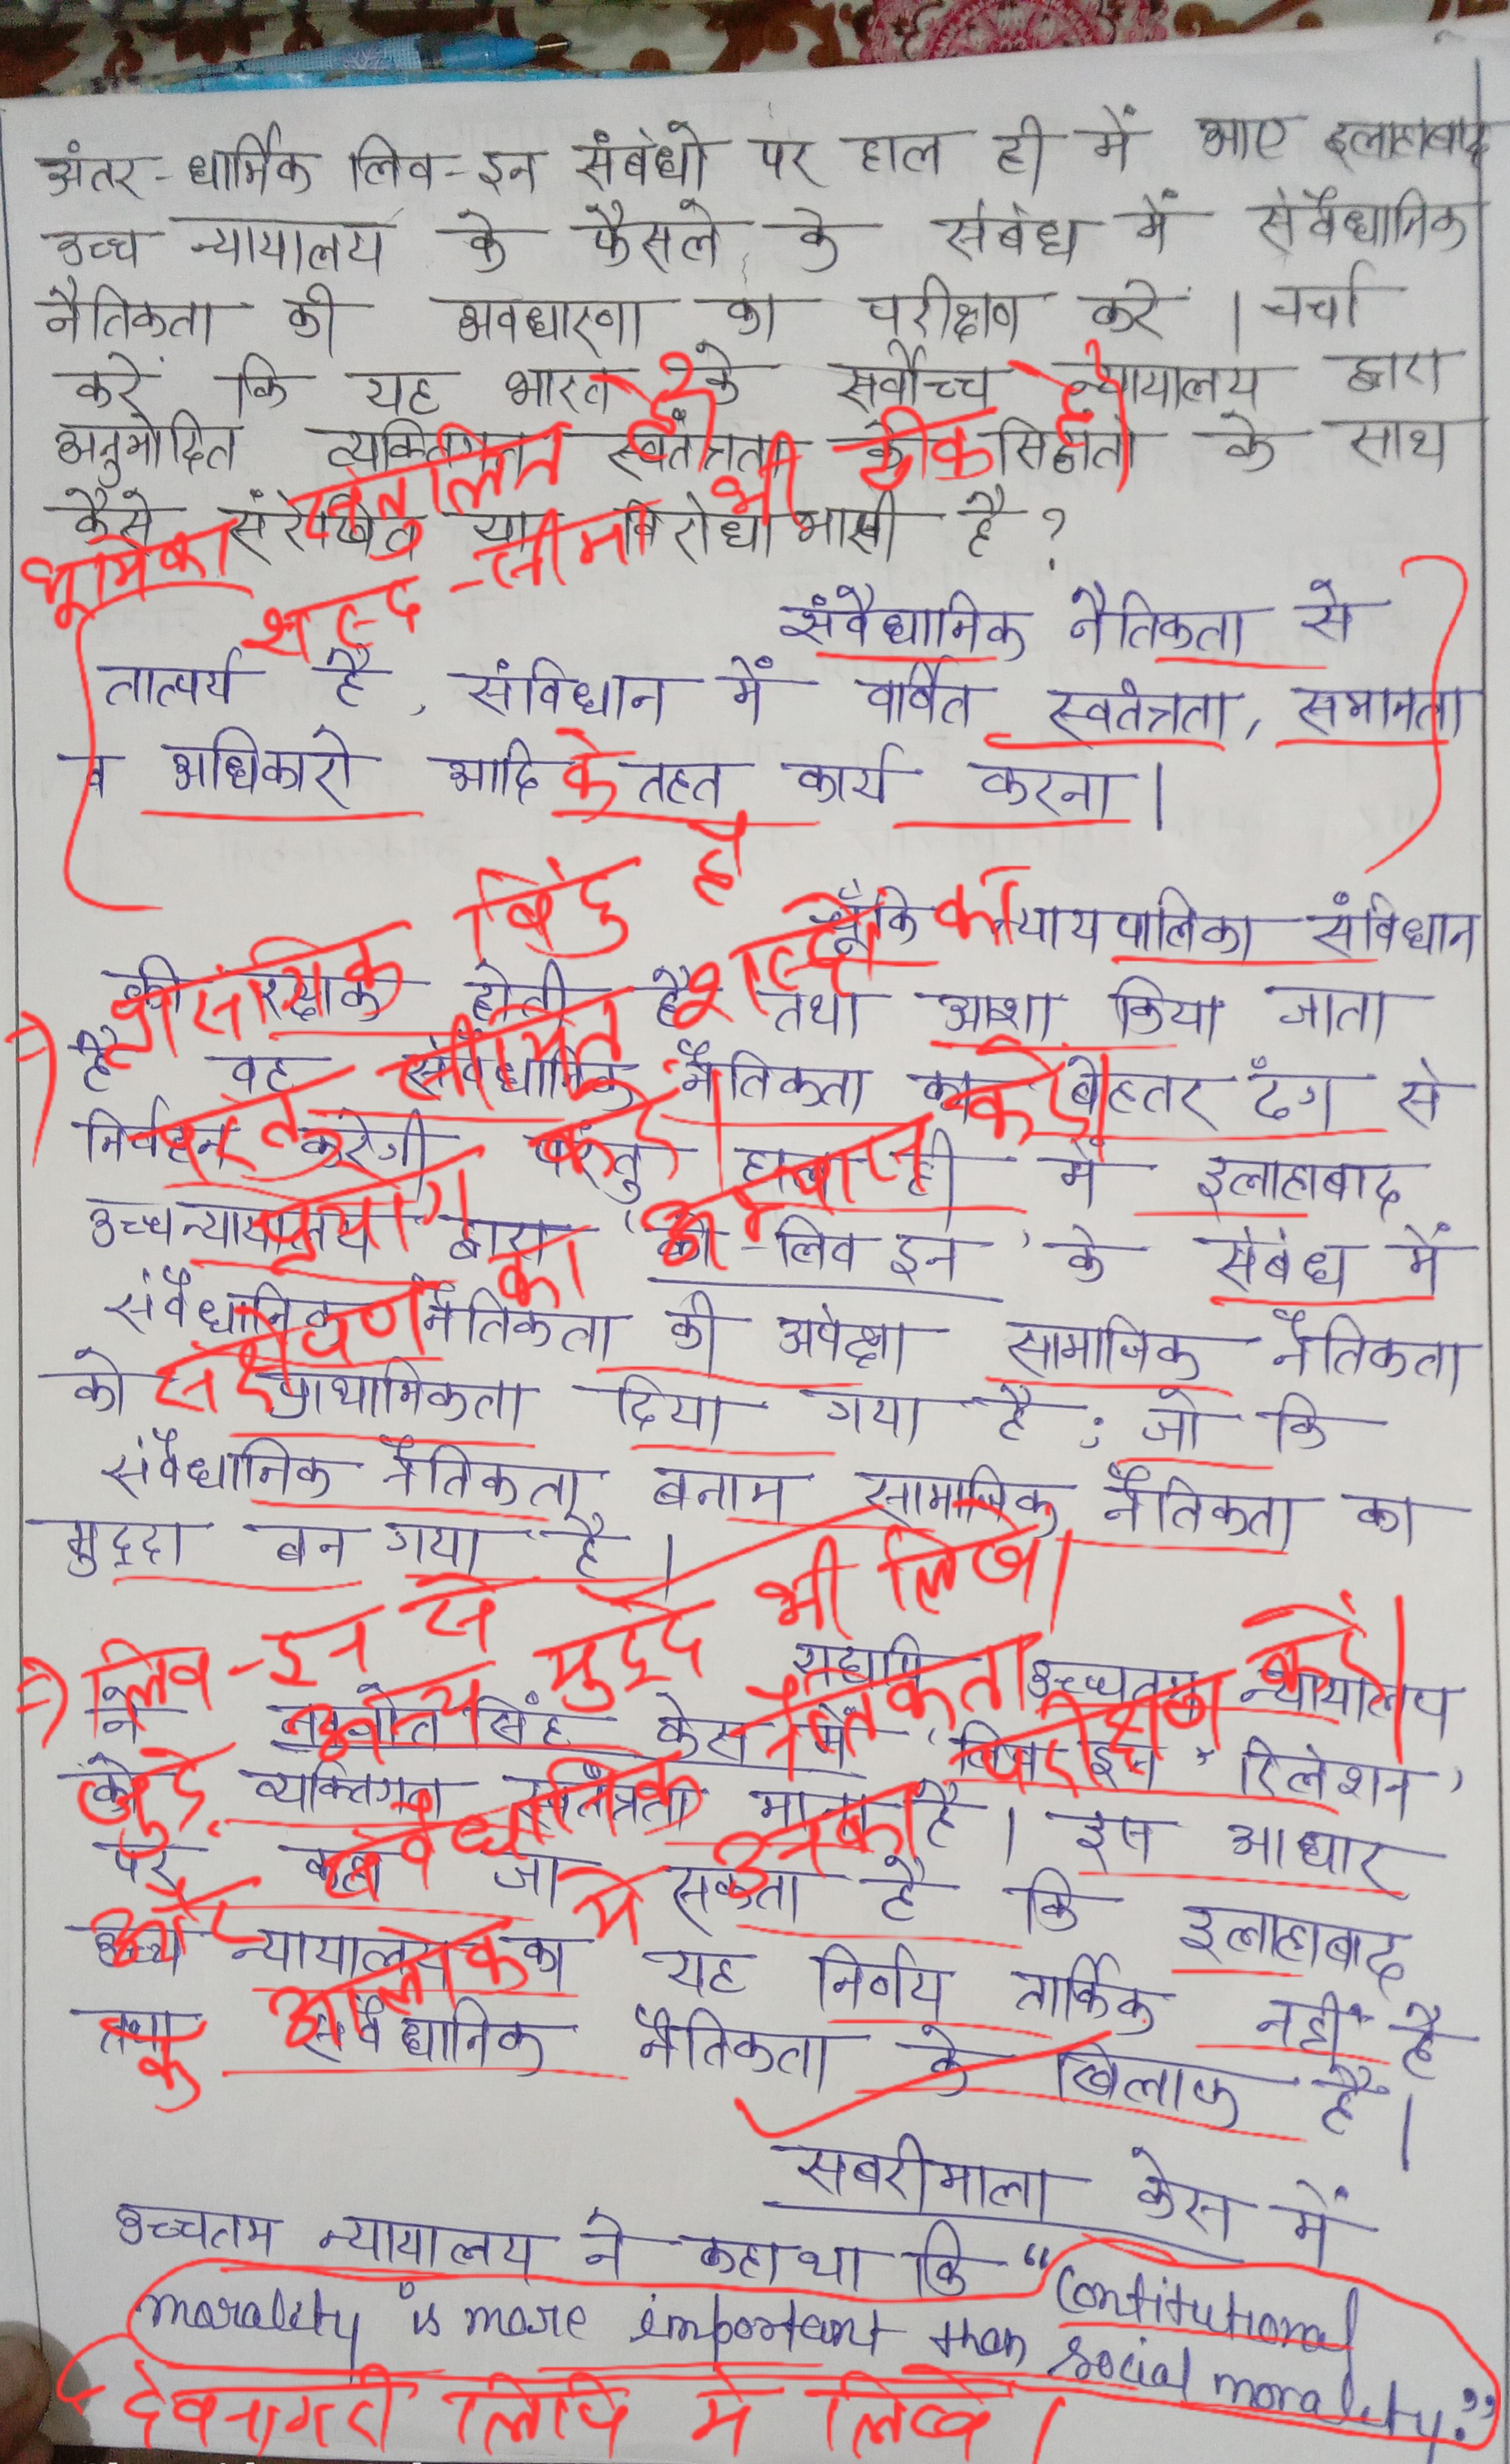 अंतर-धार्मिक लिव-इन संबंधो पर हाल ही में आए इलाहाबाद
उच्च न्यायालय के फैसले के संबंध में संवैधानिक
नैतिकता की अवधारणा का परीक्षण करें । चर्चा
करें कि यह भारत के सर्वोच्च न्यायालय द्वारा
अनुमोदित व्यक्तिगत स्वतंत्रता के सिद्धांतो के साथ
कैसे संरेखित या विरोधाभासी है ?
भूमिका संतुलित है
शब्द-सीमा भी ठीक है
संवैधानिक नैतिकता से
तात्पर्य है, संविधान में वर्णित स्वतंत्रता, समानता
व अधिकारो आदि के तहत कार्य करना ।
चूँकि न्यायपालिका संविधान
की संरक्षक होती है तथा आशा किया जाता
है वह संवैधानिक नैतिकता का बेहतर ढंग से
निर्वहन करेगी परंतु हाल ही में इलाहाबाद
उच्चन्यायालय द्वारा 'को-लिव इन' के संबंध में
संवैधानिक नैतिकता की अपेक्षा सामाजिक नैतिकता
को प्राथमिकता दिया गया है; जो कि
संवैधानिक नैतिकता बनाम सामाजिक नैतिकता का
मुद्दा बन गया है ।
प्रासंगिक बिंदु है
सीमित शब्दों का
प्रयोग करें।
का अभ्यास करें
लिव-इन से मुद्दे भी लिखें।
यद्यपि उच्चतम न्यायालय
ने सिंह केस में 'लिव इन रिलेशन'
को व्यक्तिगत स्वतंत्रता माना है । इस आधार
पर कहा जा सकता है कि इलाहाबाद
उच्च न्यायालय का यह निर्णय तार्किक नहीं है
तथा संवैधानिक नैतिकता के खिलाफ है ।
जुड़े संवैधानिक नैतिकता
और उनका परीक्षण करें।
के आलोक में
सबरीमाला केस में
उच्चतम न्यायालय ने कहा था कि “Contitutional
morality is more important than social morality.”
देवनागरी लिपि में लिखें।